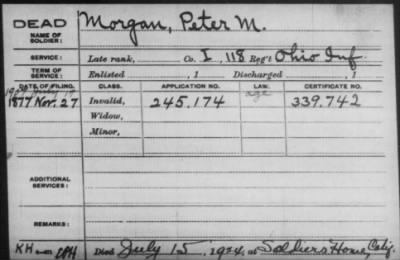 DEAD
NAME OF SOLDIER:
Morgan, Peter M.
SERVICE:
Late rank, Co. I, 118 Reg't Ohio Inf.
TERM OF SERVICE:
Enlisted , 1 Discharged , 1
DATE OF FILING. CLASS. APPLICATION NO. LAW. CERTIFICATE NO.
age
1877 Nov. 27 Invalid, 245.174 339.742
Widow,
Minor,
ADDITIONAL SERVICES:
REMARKS:
KH Died July 15, 1924, at Soldiers Home, Calif.